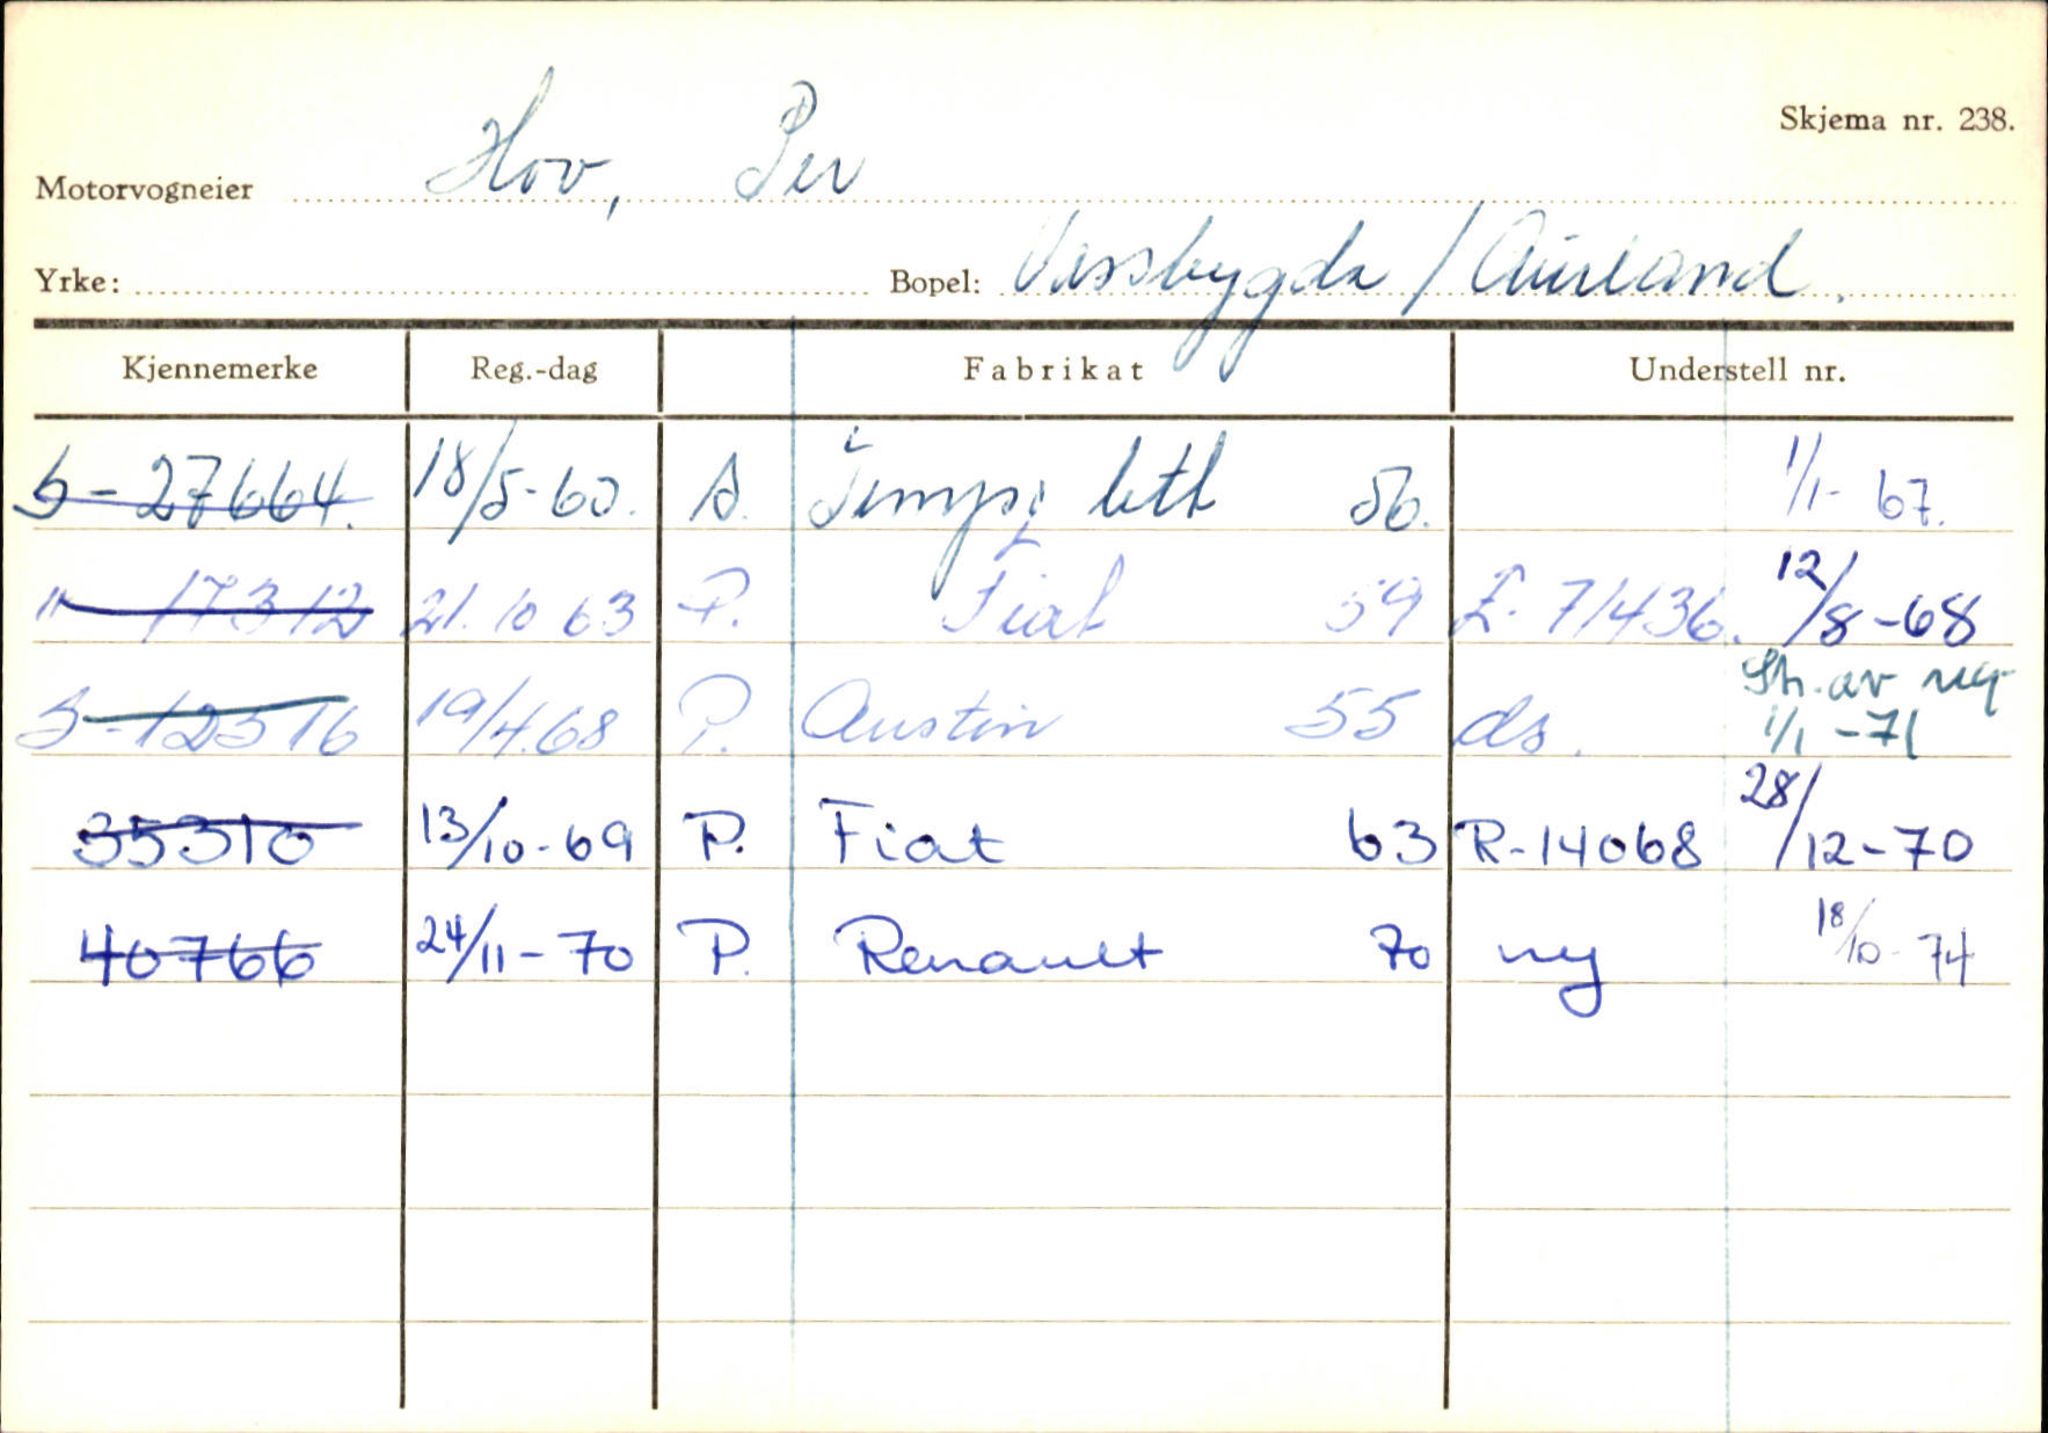 Skjema nr. 238.
Motorvogneier Hov, Per
Yrke: Bopel: Vassbygda / Aurland.
Kjennemerke Reg.-dag Fabrikat Understell nr.
S-27664. 18/5-60. Tempo 56. 1/1-67.
" 17312 21.10 63 P. Fiat 59 71436. 12/8-68
S-12516 19/4.68 P. Austin 55 ds. Sl. av reg
1/1-71
35310 13/10-69 P. Fiat 63 R-14068 28/12-70
40766 24/11-70 P. Renault 70 ny 18/10-74